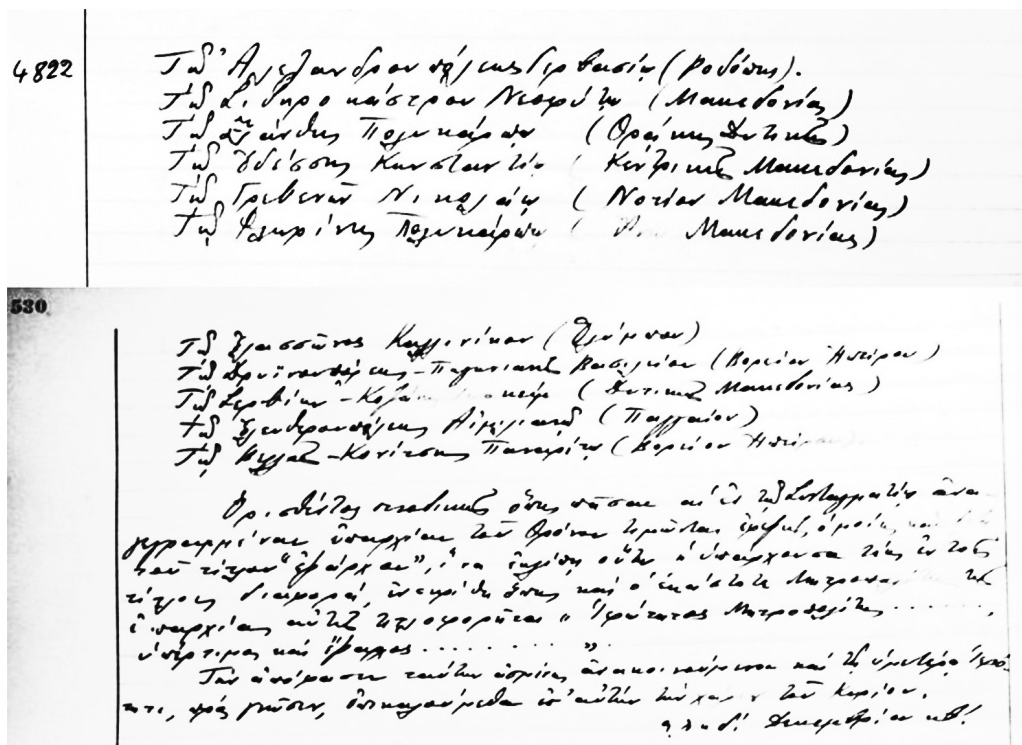 4822
Τῷ Ἀλεξανδρουπόλεως Γερβασίῳ (Ροδόπης).
Τῷ Σιδηροκάστρου Νεοφύτῳ (Μακεδονίας)
Τῷ Ξάνθης Πολυκάρπῳ (Θράκης Δυτικῆς)
Τῷ Ἐδέσσης Κωνσταντίνῳ (Κεντρικῆς Μακεδονίας)
Τῷ Γρεβενῶν Νικολάῳ (Νοτίου Μακεδονίας)
Τῷ Φλωρίνης Πολυκάρπῳ ( Μακεδονίας)
530
Τῷ Ἐλασσῶνος Καλλινίκου (Ὀλύμπου)
Τῷ Δρυϊνουπόλεως-Πωγωνιανῆς Βασιλείου (Βορείου Ἠπείρου)
Τῷ Σερβίων-Κοζάνης (Δυτικῆς Μακεδονίας)
Τῷ Ἐλευθερουπόλεως Αἰμιλιανῷ (Παγγαίου)
Τῷ Βελλᾶς-Κονίτσης Παναρέτῳ (Βορείου Ἠπείρου)
Ὁρισθέντος συνοδικῶς ὅπως πᾶσαι αἱ ἐν τῷ Συνταγματίῳ ἀνα-
γεγραμμέναι ἐπαρχίαι τοῦ Θρόνου τιμῶνται ἐφεξῆς ὁμοίως καὶ διὰ
τοῦ τίτλου "ἐξάρχου", ἵνα ἐκλίπῃ οὕτω ἡ ὑπάρχουσα τέως ἐν τοῖς
τίτλοις διαφορά, ἐνεκρίθη ὅπως καὶ ὁ ἑκάστοτε Μητροπολίτης τῆς
ἐπαρχίας αὐτῆς τιτλοφορῆται "Ἱερώτατος Μητροπολίτης .......,
ὑπέρτιμος καὶ ἔξαρχος ........".
Τὴν ἀπόφασιν ταύτην ἀσμένως ἀνακοινούμενοι καὶ τῇ ὑμετέρᾳ Ἱερό-
τητι, πρὸς γνῶσιν, ἐπικαλούμεθα ἐπ' αὐτὴν τὴν χάριν τοῦ Κυρίου.
Δεκεμβρίου κθ'.